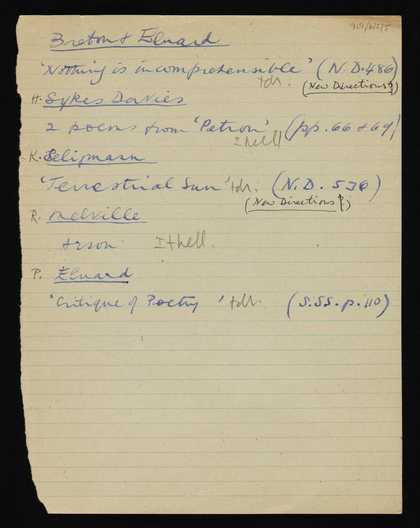 Breton & Eluard
'Nothing is incomprehensible' (N.D. 486)
tdr. (New Directions)
H. Sykes Davies
2 poems from 'Petron' (pp. 66 & 69)
K. Seligmann
'Terrestrial Sun' tdr. (N.D. 536)
(New Directions)
R. Melville
Ithell.
P. Eluard
'Critique of Poetry' tdr. (S.SS. p. 110)